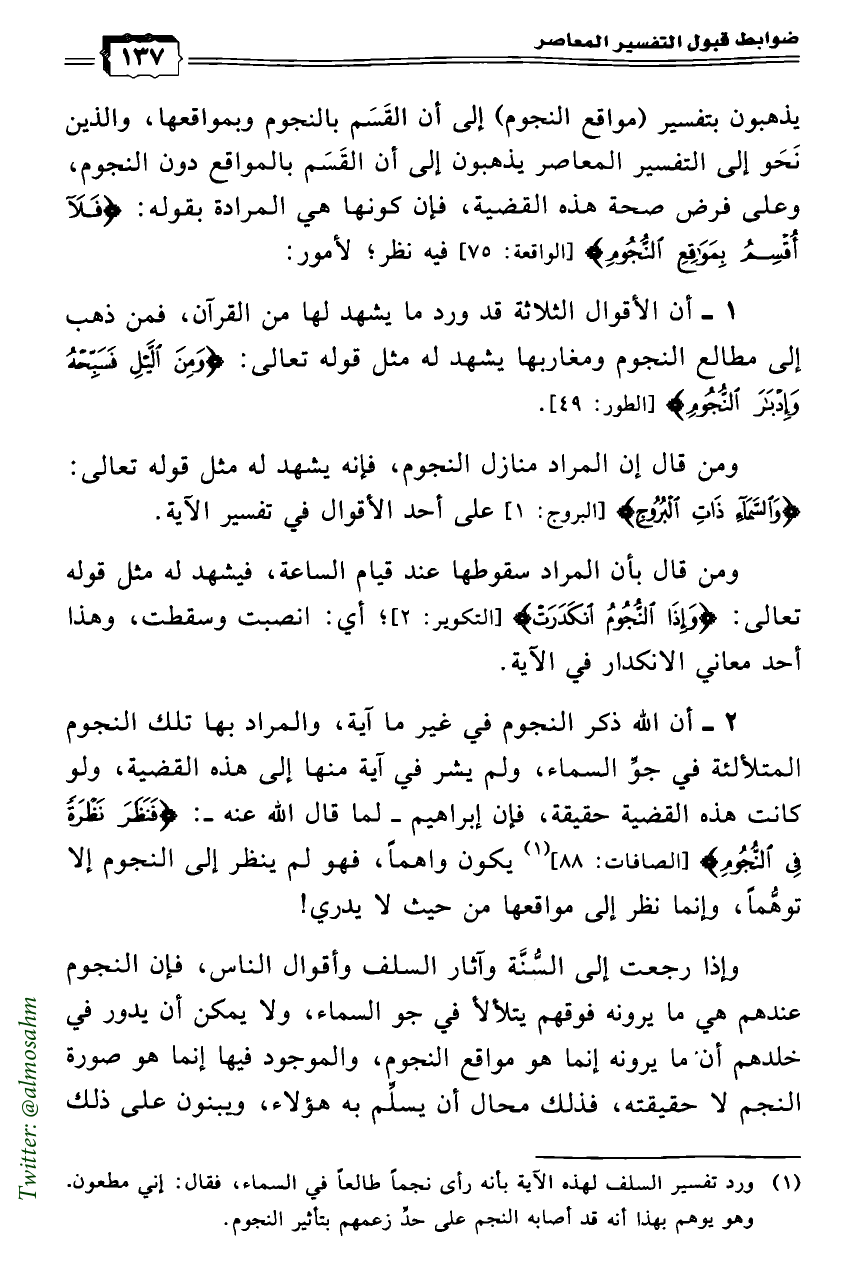 ضوابط قبول التفسير المعاصر
١٣٧
يذهبون بتفسير (مواقع النجوم) إلى أن القَسَم بالنجوم وبمواقعها، والذين
نَحَو إلى التفسير المعاصر يذهبون إلى أن القَسَم بالمواقع دون النجوم،
وعلى فرض صحة هذه القضية، فإن كونها هي المرادة بقوله: ﴿فَلَآ
أُقْسِمُ بِمَوَٰقِعِ ٱلنُّجُومِ﴾ [الواقعة: ٧٥] فيه نظر؛ لأمور:
١ ـ أن الأقوال الثلاثة قد ورد ما يشهد لها من القرآن، فمن ذهب
إلى مطالع النجوم ومغاربها يشهد له مثل قوله تعالى: ﴿وَمِنَ ٱلَّيْلِ فَسَبِّحْهُ
وَإِدْبَٰرَ ٱلنُّجُومِ﴾ [الطور: ٤٩].
ومن قال إن المراد منازل النجوم، فإنه يشهد له مثل قوله تعالى:
﴿وَٱلسَّمَآءِ ذَاتِ ٱلْبُرُوجِ﴾ [البروج: ١] على أحد الأقوال في تفسير الآية.
ومن قال بأن المراد سقوطها عند قيام الساعة، فيشهد له مثل قوله
تعالى: ﴿وَإِذَا ٱلنُّجُومُ ٱنكَدَرَتْ﴾ [التكوير: ٢]؛ أي: انصبت وسقطت، وهذا
أحد معاني الانكدار في الآية.
٢ ـ أن الله ذكر النجوم في غير ما آية، والمراد بها تلك النجوم
المتلألئة في جوِّ السماء، ولم يشر في آية منها إلى هذه القضية، ولو
كانت هذه القضية حقيقة، فإن إبراهيم ـ لما قال الله عنه ـ: ﴿فَنَظَرَ نَظْرَةً
فِى ٱلنُّجُومِ﴾ [الصافات: ٨٨](١) يكون واهماً، فهو لم ينظر إلى النجوم إلا
توهُّماً، وإنما نظر إلى مواقعها من حيث لا يدري!
وإذا رجعت إلى السُّنَّة وآثار السلف وأقوال الناس، فإن النجوم
عندهم هي ما يرونه فوقهم يتلألأ في جو السماء، ولا يمكن أن يدور في
خلدهم أن ما يرونه إنما هو مواقع النجوم، والموجود فيها إنما هو صورة
النجم لا حقيقته، فذلك محال أن يسلِّم به هؤلاء، ويبنون على ذلك
(١) ورد تفسير السلف لهذه الآية بأنه رأى نجماً طالعاً في السماء، فقال: إني مطعون.
وهو يوهم بهذا أنه قد أصابه النجم على حدِّ زعمهم بتأثير النجوم.
Twitter: @almosahm